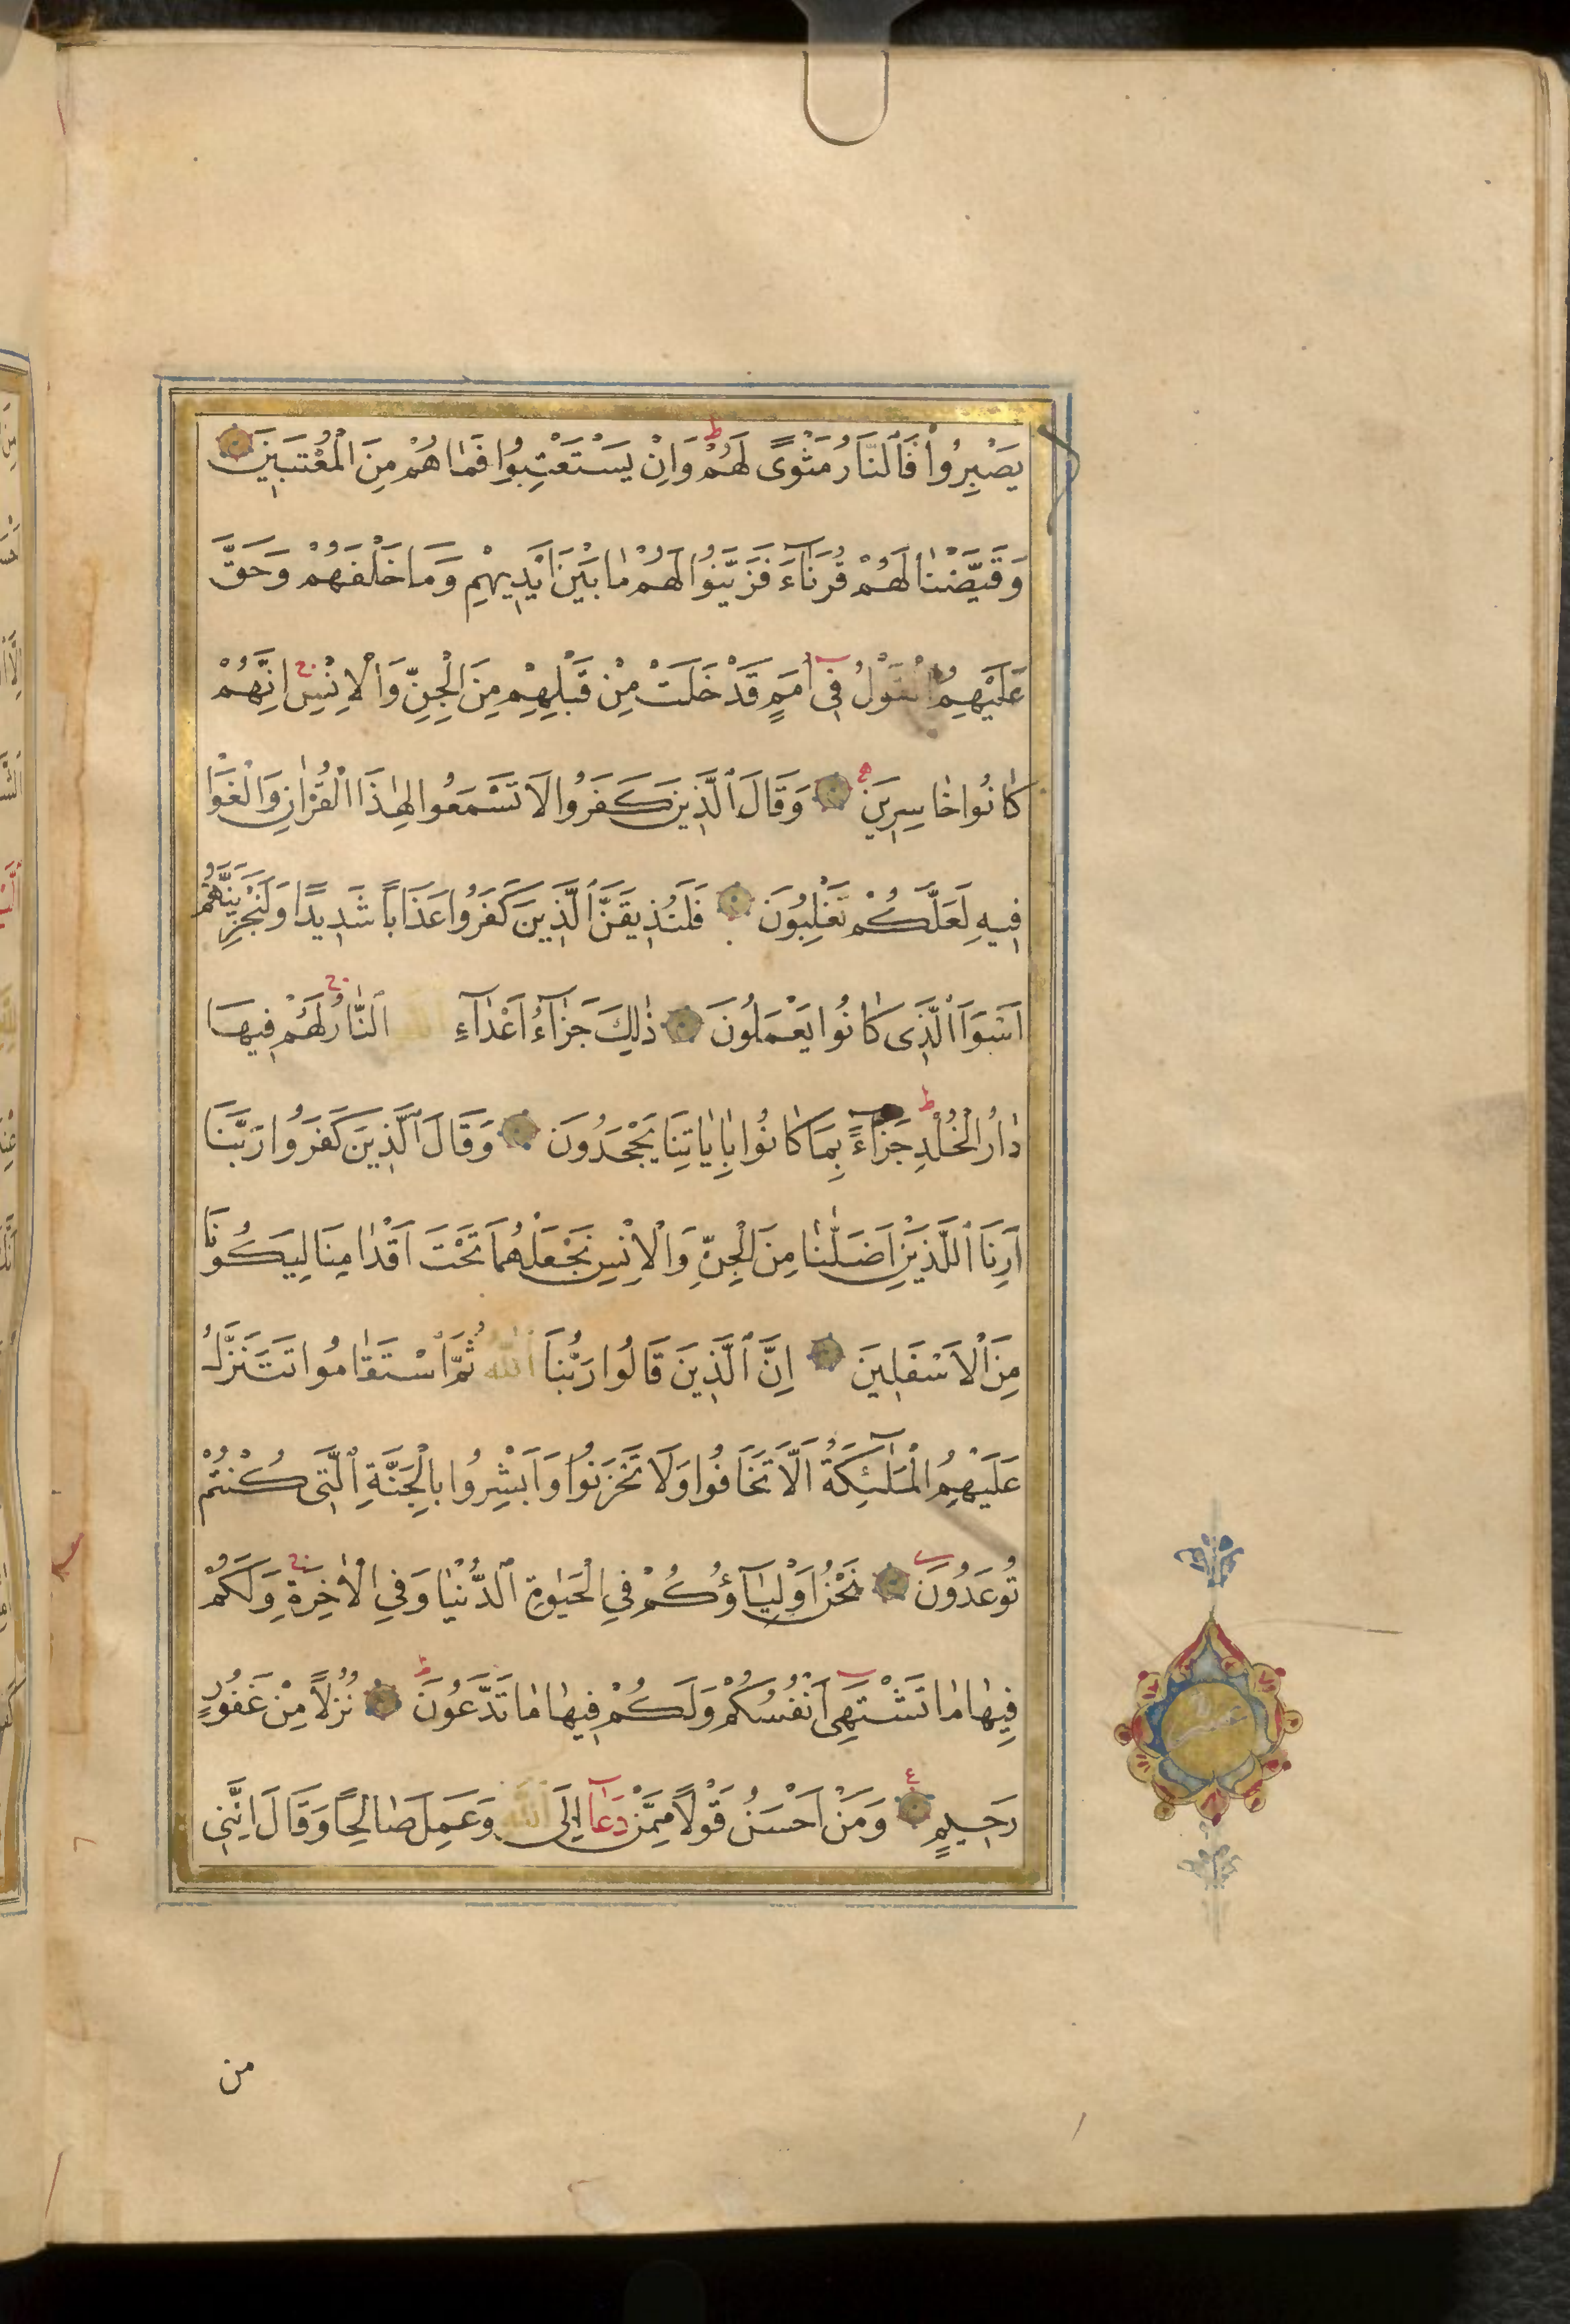 يَصْبِرُوا فَالنَّارُ مَثْوًى لَهُمْ ط وَاِنْ يَسْتَعْتِبُوا فَمَا هُمْ مِنَ الْمُعْتَبِينَ
وَقَيَّضْنَا لَهُمْ قُرَنَآءَ فَزَيَّنُوا لَهُمْ مَا بَيْنَ اَيْدِيهِمْ وَمَا خَلْفَهُمْ وَحَقَّ
عَلَيْهِمُ الْقَوْلُ فِى اُمَمٍ قَدْ خَلَتْ مِنْ قَبْلِهِمْ مِنَ الْجِنِّ وَالْاِنْسِ اِنَّهُمْ
كَانُوا خَاسِرِينَ وَقَالَ الَّذِينَ كَفَرُوا لَا تَسْمَعُوا لِهٰذَا الْقُرْاٰنِ وَالْغَوْا
فِيهِ لَعَلَّكُمْ تَغْلِبُونَ فَلَنُذِيقَنَّ الَّذِينَ كَفَرُوا عَذَابًا شَدِيدًا وَلَنَجْزِيَنَّهُمْ
اَسْوَاَ الَّذِى كَانُوا يَعْمَلُونَ ذٰلِكَ جَزَآءُ اَعْدَآءِ اللّٰهِ النَّارُ لَهُمْ فِيهَا
دَارُ الْخُلْدِ ط جَزَآءً بِمَا كَانُوا بِاٰيَاتِنَا يَجْحَدُونَ وَقَالَ الَّذِينَ كَفَرُوا رَبَّنَا
اَرِنَا الَّلذَيْنِ اَضَلَّانَا مِنَ الْجِنِّ وَالْاِنْسِ نَجْعَلْهُمَا تَحْتَ اَقْدَامِنَا لِيَكُونَا
مِنَ الْاَسْفَلِينَ اِنَّ الَّذِينَ قَالُوا رَبُّنَا اللّٰهُ ثُمَّ اسْتَقَامُوا تَتَنَزَّلُ
عَلَيْهِمُ الْمَلٰٓئِكَةُ اَلَّا تَخَافُوا وَلَا تَحْزَنُوا وَاَبْشِرُوا بِالْجَنَّةِ الَّتِى كُنْتُمْ
تُوعَدُونَ نَحْنُ اَوْلِيَآؤُكُمْ فِي الْحَيٰوةِ الدُّنْيَا وَفِي الْاٰخِرَةِ وَلَكُمْ
فِيهَا مَا تَشْتَهِى اَنْفُسُكُمْ وَلَكُمْ فِيهَا مَا تَدَّعُونَ ط نُزُلًا مِنْ غَفُورٍ
رَحِيمٍ ع وَمَنْ اَحْسَنُ قَوْلًا مِمَّنْ دَعَآ اِلَى اللّٰهِ وَعَمِلَ صَالِحًا وَقَالَ اِنَّنِى
من